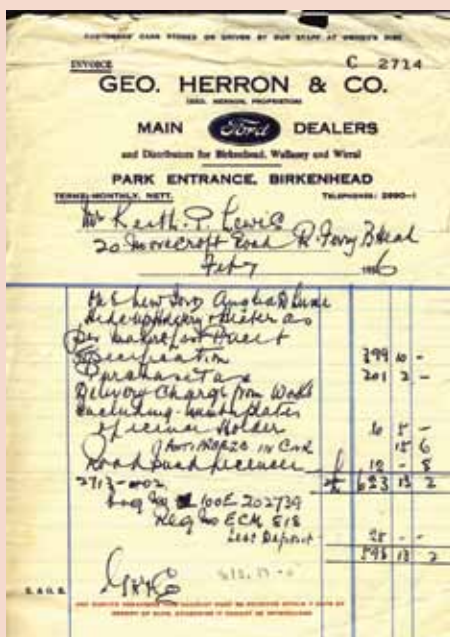 CUSTOMERS' CARS STORED OR DRIVEN BY OUR STAFF AT OWNER'S RISK
INVOICE C 2714
GEO. HERRON & CO.
(GEO. HERRON, PROPRIETOR)
MAIN Ford DEALERS
and Distributors for Birkenhead, Wallasey and Wirral
PARK ENTRANCE, BIRKENHEAD
TERMS: MONTHLY, NETT. TELEPHONE: 2890-1
Mr Keith. P. Lewis
20 Morecroft Road R. Ferry B'Head
Feb 7 1956
One New Ford Anglia De Luxe
Heater as
per
Specification 399 10 -
Purchase Tax 201 2 -
Delivery Charge from Works
including number plates
& licence Holder 6 5 -
ANTIFREEZE IN CAR 15 6
Road Fund licence 12 - 8
2713-
Eng No 100E 202739
Reg No ECM 818
Less Deposit 25 - -
13 2
E. & O. E.